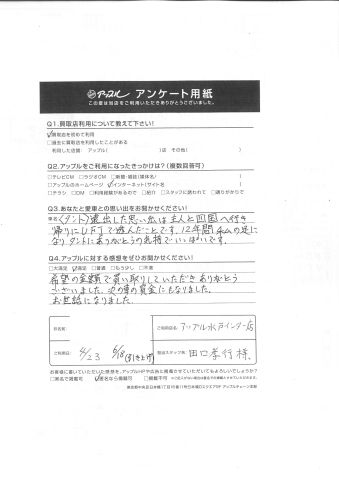 アップル アンケート用紙
この度は当店をご利用いただきありがとうございました。
Q1.買取店利用について教えて下さい!
☑買取店を初めて利用
□過去に買取店を利用したことがある
利用した店舗: アップル( )店 その他( )
Q2.アップルをご利用になったきっかけは?(複数回答可)
□テレビCM □ラジオCM □新聞・雑誌(媒体名: )
□アップルのホームページ ☑インターネット(サイト名 )
□チラシ □DM □利用経験があるので □紹介 □スタッフに誘われて □通りがかりで
Q3.あなたと愛車との思い出をお聞かせください!
車名(タント)遠出した思い出は主人と四国へ行き
帰りにUFJで遊んだことです。12年間私の足に
なりタントにありがとうの気持でいっぱいです。
Q4.アップルに対する感想をぜひお聞かせください!
□大満足 ☑満足 □普通 □もう少し □不満
希望の金額で買い取りしていただきありがとう
ございました。次の車の資金にもなりました。
お世話になりました。
お名前:
ご利用店名: アップル水戸インター店
ご利用日: 4/23 6/18(引き上げ)
担当スタッフ名: 田口孝行様。
お客様に書いていただいた感想を、アップルHPや広告に掲載させていただいてもよろしいでしょうか?
□実名で掲載可 ☑匿名なら掲載可 □掲載不可